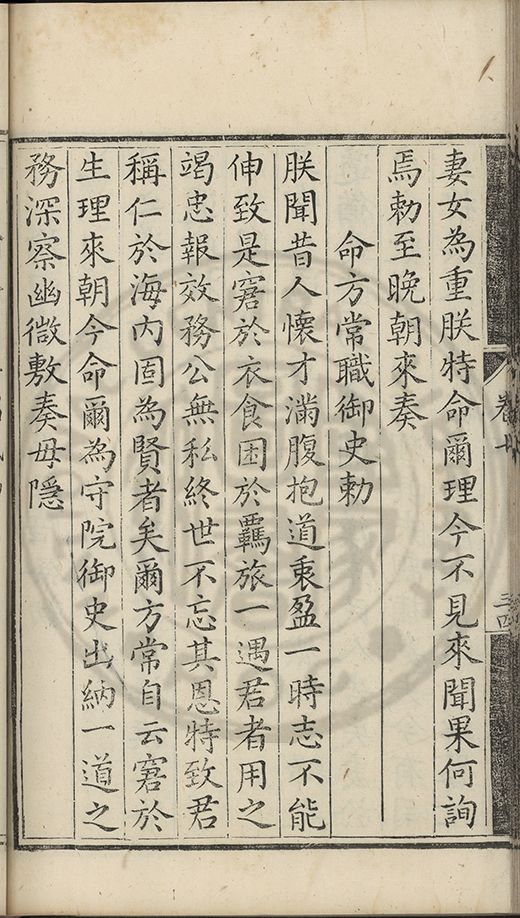 妻女為重朕特命爾理今不見來聞果何詢
焉勅至晚朝來奏
命方常職御史勅
朕聞昔人懷才滿腹抱道秉盈一時志不能
伸致是窘於衣食困於羈旅一遇君者用之
竭忠報效務公無私終世不忘其恩特致君
稱仁於海內固為賢者矣爾方常自云窘於
生理來朝今命爾為守院御史出納一道之
務深察幽微敷奏毋隱
卷七
三四